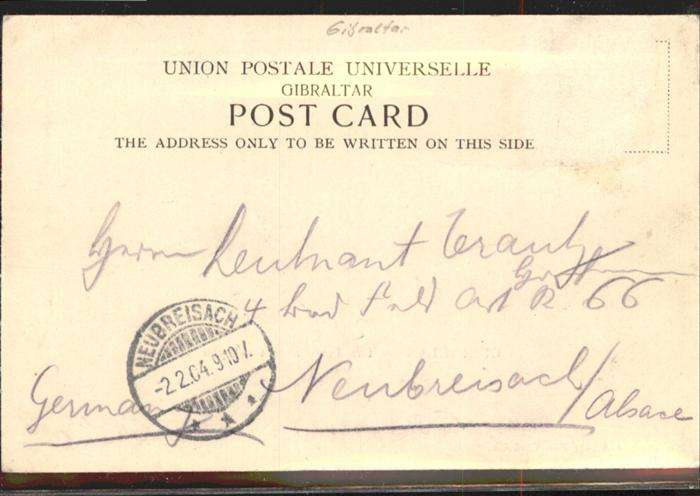 Gibraltar
UNION POSTALE UNIVERSELLE
GIBRALTAR
POST CARD
THE ADDRESS ONLY TO BE WRITTEN ON THIS SIDE
Herrn Leutnant
4 Bad Feld Art R. 66
NEUBREISACH
-2.2.04.9-10V.
Neubreisach/Alsace
Germany